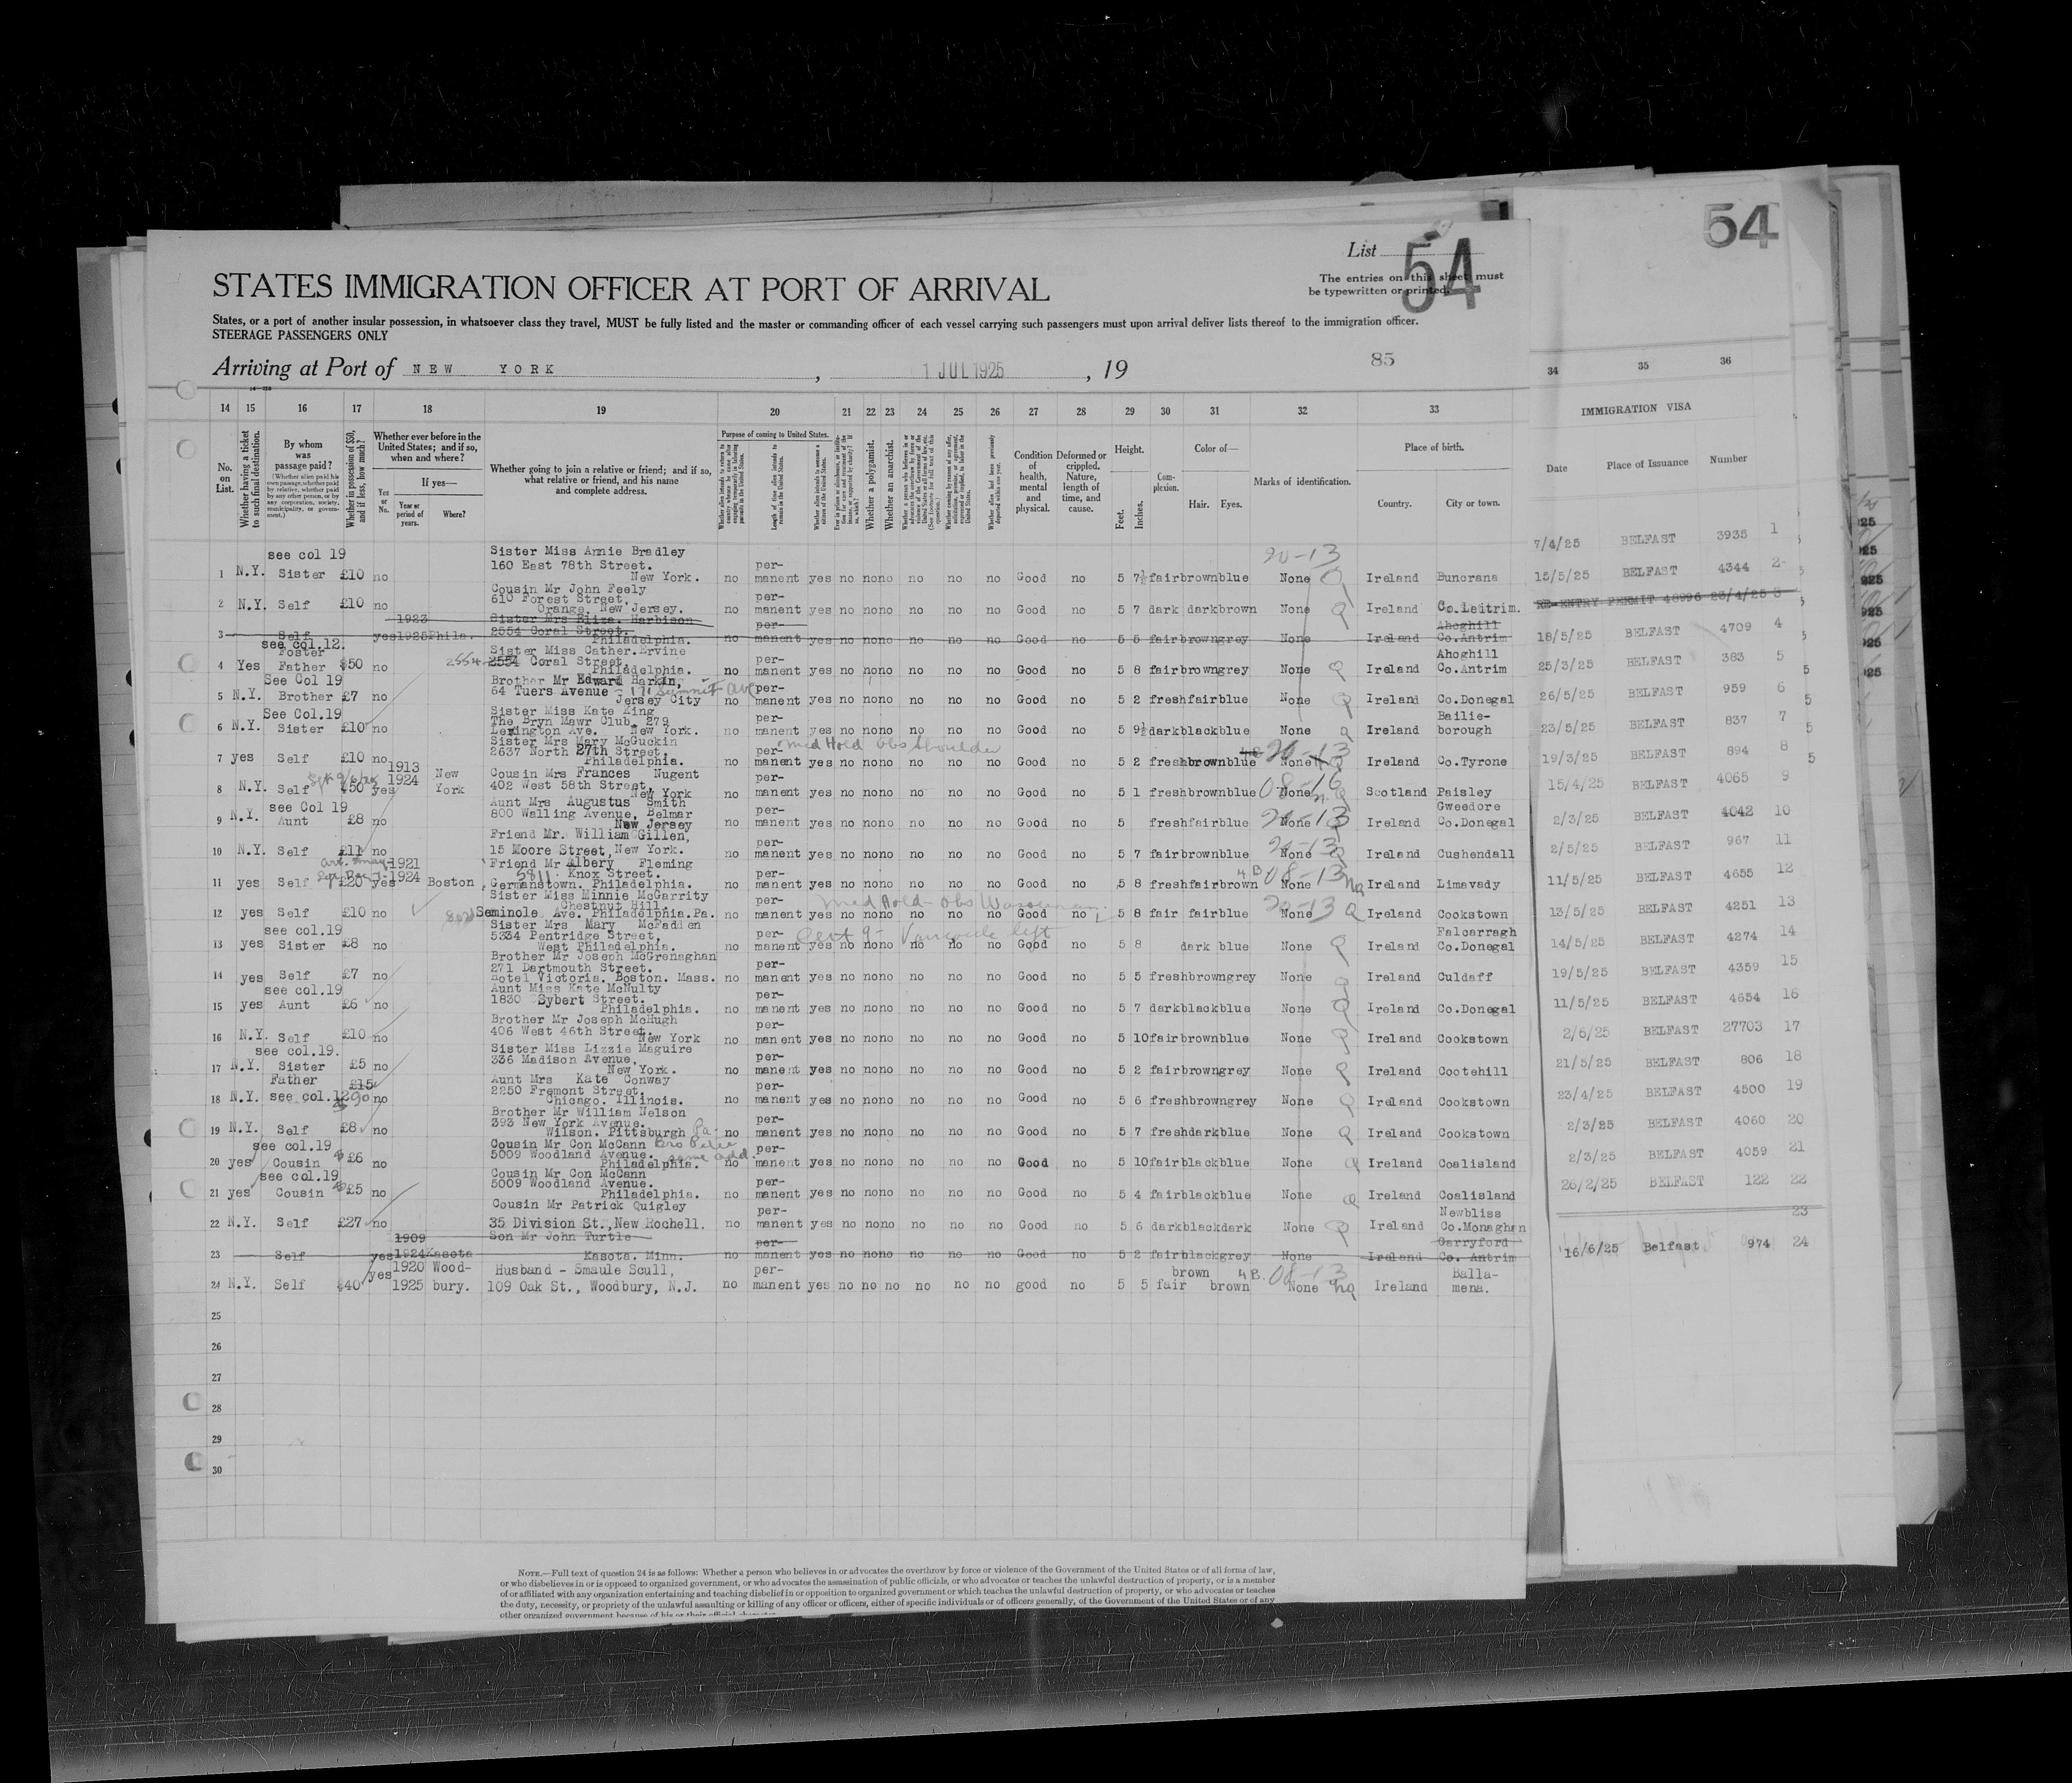 54
List
54
The entries on this sheet must
be typewritten or printed.
STATES IMMIGRATION OFFICER AT PORT OF ARRIVAL
States, or a port of another insular possession, in whatsoever class they travel, MUST be fully listed and the master or commanding officer of each vessel carrying such passengers must upon arrival deliver lists thereof to the immigration officer.
STEERAGE PASSENGERS ONLY
Arriving at Port of NEW YORK , 1 JUL 1925 , 19
85
14 15 16 17 18 19 20 21 22 23 24 25 26 27 28 29 30 31 32 33 34 35 36
No. on List.
Whether having a ticket to such final destination.
By whom was passage paid?
(Whether alien paid his own passage, whether paid by relative, whether paid by any other person, or by any corporation, society, municipality, or government.)
Whether in possession of $50, and if less, how much?
Whether ever before in the United States; and if so, when and where?
If yes—
Yes or No.
Year or period of years.
Where?
Whether going to join a relative or friend; and if so, what relative or friend, and his name and complete address.
Purpose of coming to United States.
Length of time alien intends to remain in the United States.
Whether alien intends to become a citizen of the United States.
Whether a polygamist.
Whether an anarchist.
Condition of health, mental and physical.
Deformed or crippled. Nature, length of time, and cause.
Height.
Feet. Inches.
Complexion.
Color of—
Hair. Eyes.
Marks of identification.
Place of birth.
Country. City or town.
IMMIGRATION VISA
Date Place of Issuance Number
see col 19 Sister Miss Annie Bradley 20-13
160 East 78th Street. per-
1 N.Y. Sister £10 no New York. no manent yes no no no no no no Good no 5 7½ fair brown blue None Q Ireland Buncrana
Cousin Mr John Feely
610 Forest Street, per-
2 N.Y. Self £10 no Orange, New Jersey. no manent yes no no no no no no Good no 5 7 dark dark brown None Q Ireland Co.Leitrim.
1923 Sister Mrs Eliza. Harbison
2554 Coral Street. per- Ahoghill
3 Self yes 1925 Phila. Philadelphia. no manent yes no no no no no no Good no 5 5 fair brown grey None Ireland Co.Antrim
see col.12. Sister Miss Cather.Ervine
Foster 2554 2554 Coral Street, per- Ahoghill
4 Yes Father $50 no Philadelphia. no manent yes no no no no no no Good no 5 8 fair brown grey None Q Ireland Co.Antrim
See Col 19 Brother Mr Edward Harkin,
64 Tuers Avenue - 171 Summit Ave per-
5 N.Y. Brother £7 no Jersey City no manent yes no no no no no no Good no 5 2 fresh fair blue None Q Ireland Co.Donegal
See Col.19 Sister Miss Kate King
The Bryn Mawr Club, 279 per- Bailie-
6 N.Y. Sister £10 no Lexington Ave. New York. no manent yes no no no no no no Good no 5 9½ dark black blue None Q Ireland borough
Sister Mrs Mary McGuckin med Hold obs shoulder
2637 North 27th Street. per- 20-13
7 yes Self £10 no Philadelphia. no manent yes no no no no no no Good no 5 2 fresh brown blue None Q Ireland Co.Tyrone
1913 Cousin Mrs Frances Nugent
1924 New 402 West 58th Street, per- 08-16
8 N.Y. Self $50 yes York New York no manent yes no no no no no no Good no 5 1 fresh brown blue None Scotland Paisley
see Col 19 Aunt Mrs Augustus Smith
800 Walling Avenue, Belmar per- 20-13 Gweedore
9 N.Y. Aunt £8 no New Jersey no manent yes no no no no no no Good no 5 fresh fair blue None Ireland Co.Donegal
Friend Mr. William Gillen,
per- 20-13
10 N.Y. Self £11 no 15 Moore Street, New York. no manent yes no no no no no no Good no 5 7 fair brown blue None Q Ireland Cushendall
1921 Friend Mr Albery Fleming
1924 5811 Knox Street. per- 4B 08-13
11 yes Self £20 yes Boston Germanstown. Philadelphia. no manent yes no no no no no no Good no 5 8 fresh fair brown None nq Ireland Limavady
Sister Miss Minnie McGarrity
Chestnut Hill. per- med Hold - obs 20-13
12 yes Self £10 no 8020 Seminole Ave. Philadelphia.Pa. no manent yes no no no no no no Good no 5 8 fair fair blue None Q Ireland Cookstown
see col.19 Sister Mrs Mary McFadden
5334 Pentridge Street, per- Cert 9- Varicocele left Falcarragh
13 yes Sister £8 no West Philadelphia. no manent yes no no no no no no Good no 5 8 dark blue None Q Ireland Co.Donegal
Brother Mr Joseph McGrenaghan
271 Dartmouth Street. per-
14 yes Self £7 no Hotel Victoria. Boston. Mass. no manent yes no no no no no no Good no 5 5 fresh brown grey None Q Ireland Culdaff
see col.19 Aunt Miss Kate McNulty
1830 Sybert Street. per-
15 yes Aunt £6 no Philadelphia. no manent yes no no no no no no Good no 5 7 dark black blue None Q Ireland Co.Donegal
Brother Mr Joseph McHugh
406 West 46th Street. per-
16 N.Y. Self £10 no New York no manent yes no no no no no no Good no 5 10 fair brown blue None Q Ireland Cookstown
see col.19. Sister Miss Lizzie Maguire
336 Madison Avenue, per-
17 N.Y. Sister £5 no New York. no manent yes no no no no no no Good no 5 2 fair brown grey None Q Ireland Cootehill
Father £15 Aunt Mrs Kate Conway
2250 Fremont Street. per-
18 N.Y. see col.12 no Chicago. Illinois. no manent yes no no no no no no Good no 5 6 fresh brown grey None Q Ireland Cookstown
Brother Mr William Nelson
393 New York Avenue. per-
19 N.Y. Self £8 no Wilson. Pittsburgh Pa. no manent yes no no no no no no Good no 5 7 fresh dark blue None Q Ireland Cookstown
see col.19 Cousin Mr Con McCann Bro Peter
5009 Woodland Avenue. same add. per-
20 yes Cousin £6 no Philadelphia. no manent yes no no no no no no Good no 5 10 fair black blue None Q Ireland Coalisland
see col.19 Cousin Mr Con McCann
5009 Woodland Avenue. per-
21 yes Cousin £5 no Philadelphia. no manent yes no no no no no no Good no 5 4 fair black blue None Q Ireland Coalisland
Cousin Mr Patrick Quigley per- Newbliss
22 N.Y. Self £27 no 35 Division St.,New Rochell. no manent yes no no no no no no Good no 5 6 dark black dark None Q Ireland Co.Monaghan
1909 Son Mr John Turtle per- Garryford
23 Self yes 1924 Kasota Kasota. Minn. no manent yes no no no no no no Good no 5 2 fair black grey None Ireland Co. Antrim
yes 1920 Wood- Husband - Smaule Scull, per- brown 4B. 08-13 Balla-
24 N.Y. Self $40 1925 bury. 109 Oak St., Woodbury, N.J. no manent yes no no no no no no good no 5 5 fair brown None nq Ireland mena.
25
26
27
28
29
30
7/4/25 BELFAST 3935 1
15/5/25 BELFAST 4344 2
RE-ENTRY PERMIT 48996 23/4/25 3
18/5/25 BELFAST 4709 4
25/3/25 BELFAST 383 5
26/5/25 BELFAST 959 6
23/5/25 BELFAST 837 7
19/3/25 BELFAST 894 8
15/4/25 BELFAST 4065 9
2/3/25 BELFAST 4042 10
2/5/25 BELFAST 967 11
11/5/25 BELFAST 4655 12
13/5/25 BELFAST 4251 13
14/5/25 BELFAST 4274 14
19/5/25 BELFAST 4359 15
11/5/25 BELFAST 4654 16
2/6/25 BELFAST 27703 17
21/5/25 BELFAST 806 18
23/4/25 BELFAST 4500 19
2/3/25 BELFAST 4060 20
2/3/25 BELFAST 4059 21
26/2/25 BELFAST 122 22
23
16/6/25 Belfast 974 24
NOTE.—Full text of question 24 is as follows: Whether a person who believes in or advocates the overthrow by force or violence of the Government of the United States or of all forms of law,
or who disbelieves in or is opposed to organized government, or who advocates the assassination of public officials, or who advocates or teaches the unlawful destruction of property, or is a member
of or affiliated with any organization entertaining and teaching disbelief in or opposition to organized government or which teaches the unlawful destruction of property, or who advocates or teaches
the duty, necessity, or propriety of the unlawful assaulting or killing of any officer or officers, either of specific individuals or of officers generally, of the Government of the United States or of any
other organized government because of his or their official character